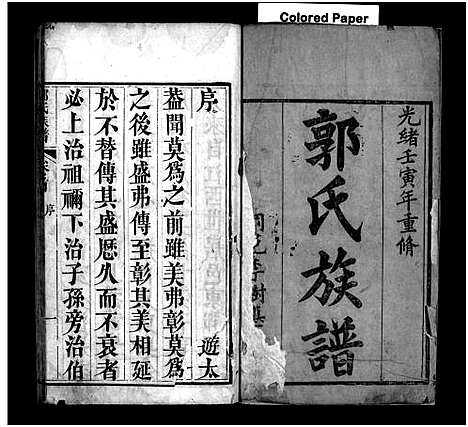 Colored Paper
光緒壬寅年重脩
郭氏族譜
序
遊太
葢聞莫爲之前雖美弗彰莫爲
之後雖盛弗傳至彰其美相延
於不替傳其盛歷久而不衰者
必上治祖禰下治子孫旁治伯
序
一